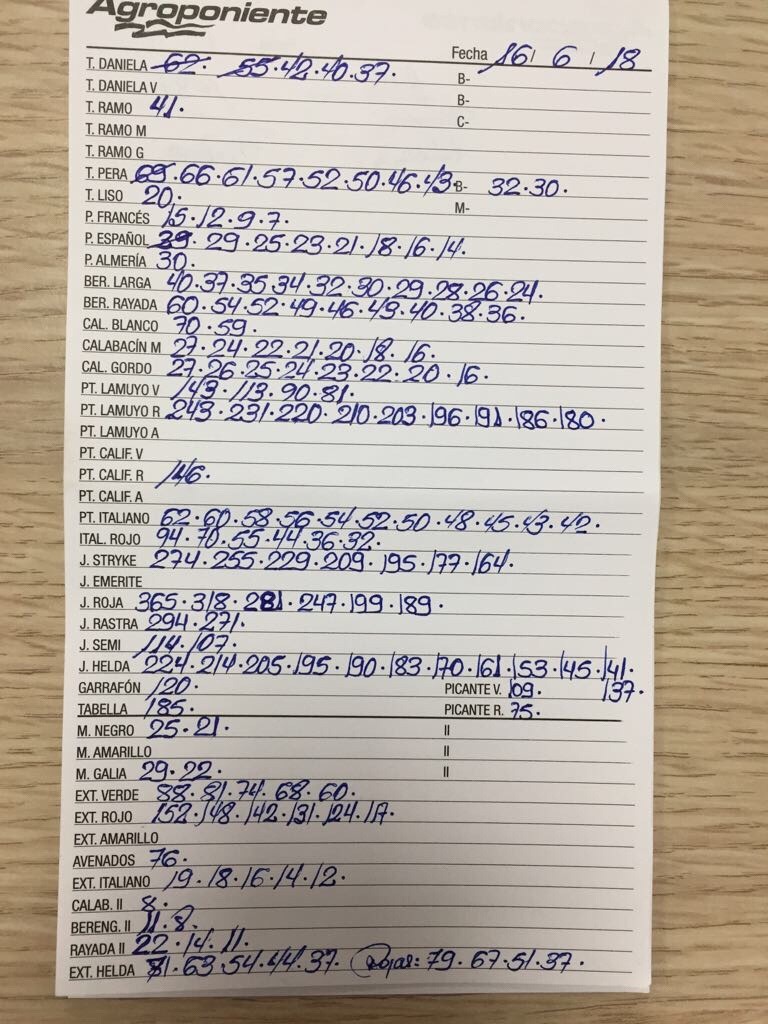 Agroponiente
Fecha 16/ 6 / 18
T. DANIELA 62. 55.42.40.37. B-
T. DANIELA V B-
T. RAMO 41. C-
T. RAMO M
T. RAMO G
T. PERA 69.66.61.57.52.50.46.43. B- 32.30.
T. LISO 20. M-
P. FRANCÉS 15.12.9.7.
P. ESPAÑOL 39.29.25.23.21.18.16.14.
P. ALMERÍA 30.
BER. LARGA 40.37.35 34.32.30.29.28.26.24.
BER. RAYADA 60.54.52.49.46.43.40.38.36.
CAL. BLANCO 70.59.
CALABACÍN M 27.24.22.21.20.18.16.
CAL. GORDO 27.26.25.24.23.22.20.16.
PT. LAMUYO V 143.113.90.81.
PT. LAMUYO R 243.231.220.210.203.196.191.186.180.
PT. LAMUYO A
PT. CALIF. V
PT. CALIF. R 146.
PT. CALIF. A
PT. ITALIANO 62.60.58.56.54.52.50.48.45.43.42.
ITAL. ROJO 94.70.55.44.36.32.
J. STRYKE 274.255.229.209.195.177.164.
J. EMERITE
J. ROJA 365.318.281.247.199.189.
J. RASTRA 294.271.
J. SEMI 114.107.
J. HELDA 224.214.205.195.190.183.170.161.153.145.141.
GARRAFÓN 120. PICANTE V. 109. 137.
TABELLA 185. PICANTE R. 75.
M. NEGRO 25.21. II
M. AMARILLO II
M. GALIA 29.22. II
EXT. VERDE 88.81.74.68.60.
EXT. ROJO 152.148.142.131.124.117.
EXT. AMARILLO
AVENADOS 76.
EXT. ITALIANO 19.18.16.14.12.
CALAB. II 8.
BERENG. II 11.8.
RAYADA II 22.14.11.
EXT. HELDA 81.63.54.44.37. Rojas: 79.67.51.37.